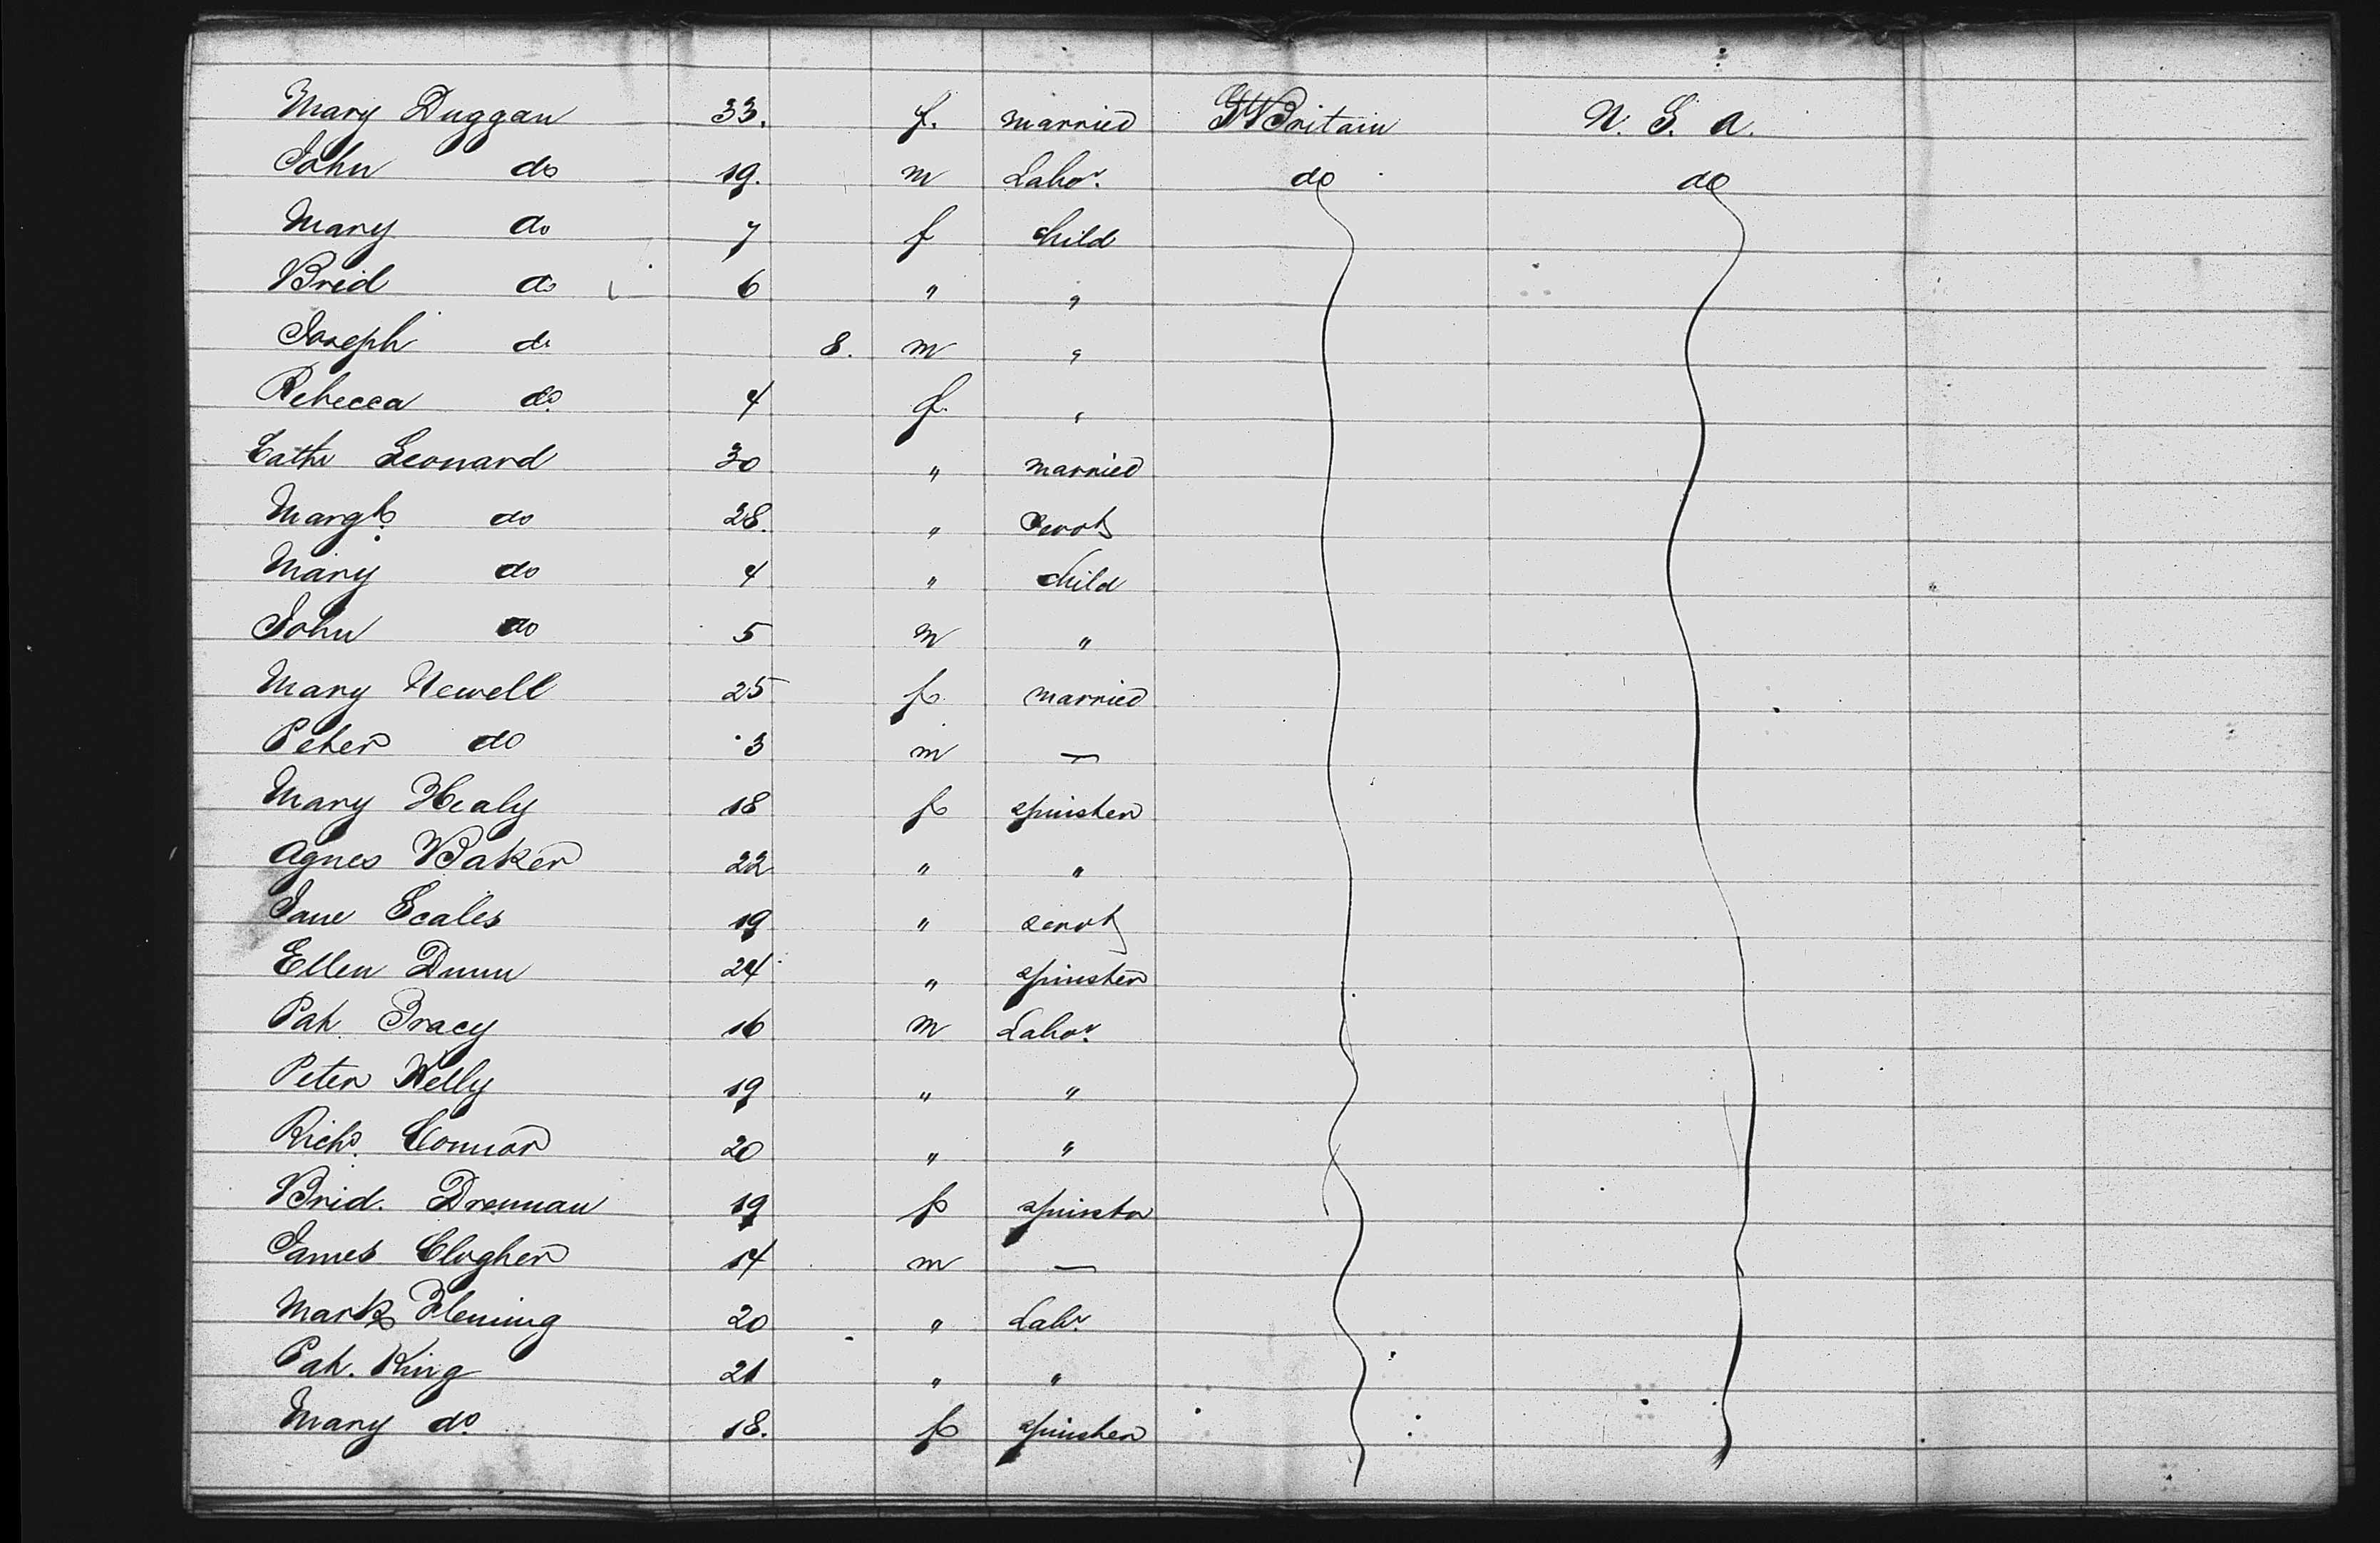 Mary Duggan 33. f. married Gt Britain U. S. A.
John do 19. m Labor. do do
Mary do 7 f child
Brid do 6 " "
Joseph do 8. m "
Rebecca do 4 f. "
Cathe Leonard 30 " married
Margt. do 28. " Servt
Mary do 4 " child
John do 5 m "
Mary Newell 25 f married
Peter do 3 m —
Mary Healy 18 f spinster
Agnes Baker 22 " "
Jane Scales 19 " servt
Ellen Dunn 24 " spinster
Pat Tracy 16 m Labor.
Peter Kelly 19 " "
Richd. Connor 20 " "
Brid. Drennan 19 f spinster
James Clogher 14 m —
Mark Fleming 20 " Labr.
Pat. King 21 " "
Mary do. 18. f spinster